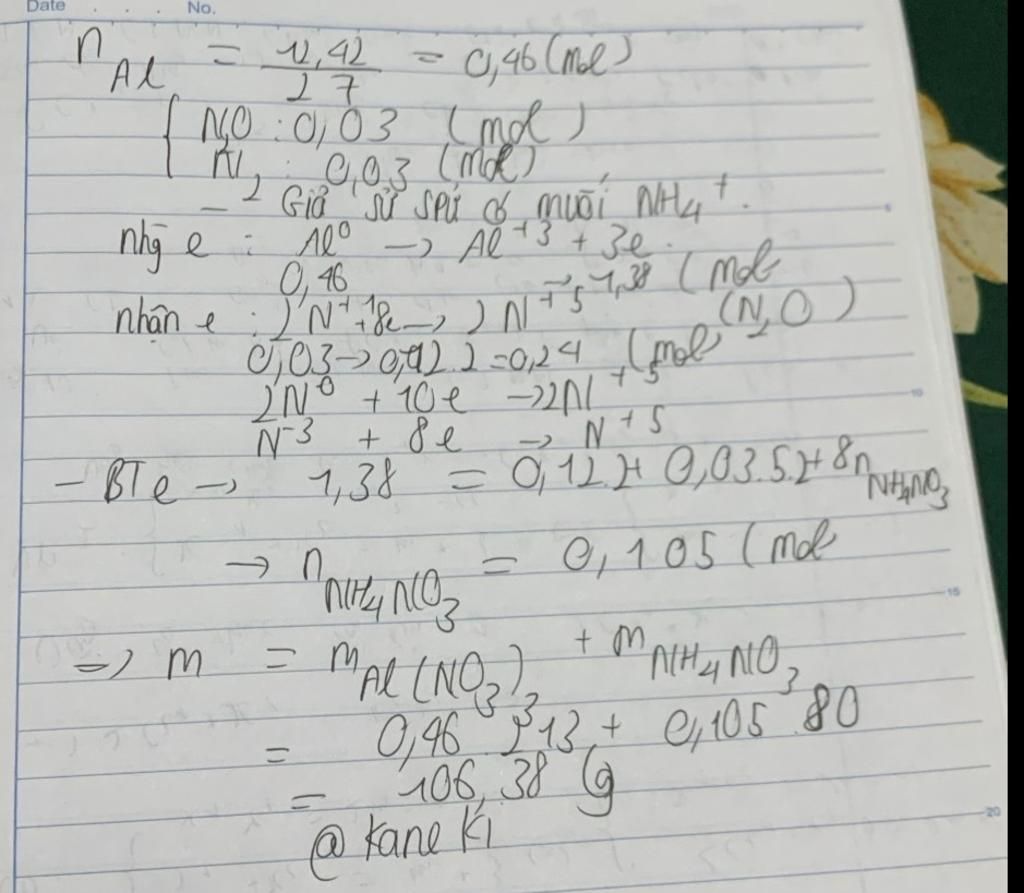 Date . . . No.
n Al = 12,42 / 27 = 0,46 (mol)
{ N2O : 0,03 (mol)
N2 : 0,03 (mol)
- Giả sử spứ có muối NH4+.
nhg e : Al⁰ → Al+3 + 3e
0,46 → 1,38 (mol
nhận e : 2N+1 + 8e → 2N+5 (N2O)
0,03 → 0,12.2 = 0,24 (mol
2N⁰ + 10e → 2N+5
N-3 + 8e → N+5
- BTe → 1,38 = 0,12.2 + 0,03.5.2 + 8n NH4NO3
→ n NH4NO3 = 0,105 (mol
=> m = m Al(NO3)3 + m NH4NO3
= 0,46 . 213 + 0,105 . 80
= 106,38 (g
@ Kane Ki
15
20